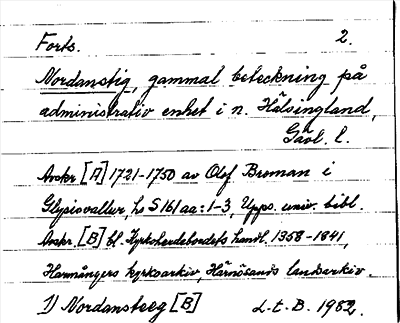 Forts. 2.
Nordanstig, gammal beteckning på
administrativ enhet i n. Hälsingland,
Gävl. l.
Avskr [A] 1721-1750 av Olof Broman i
Glysisvallur hs S 161 aa: 1-3, Upps. univ. bibl.
Avskr. [B] bl. Kyrkoherdebordets handl. 1358-1841,
Harmångers kyrkoarkiv, Härnösands landsarkiv.
1) Nordansteeg [B] L.t.B. 1982.